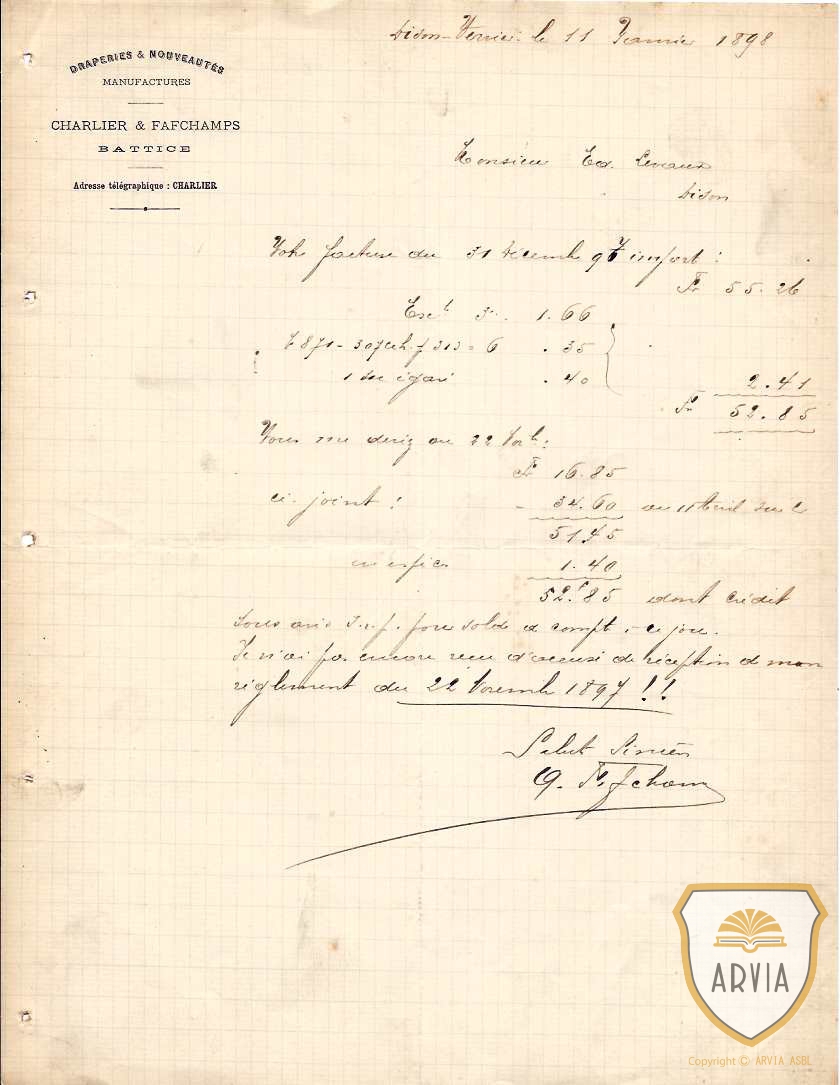 DRAPERIES & NOUVEAUTÉS
MANUFACTURES
CHARLIER & FAFCHAMPS
BATTICE
Adresse télégraphique : CHARLIER
Dison-Verviers le 11 Janvier 1898
Monsieur Ed. Levaux
Dison
Votre facture du 31 Décembre 97 import :
Fr 55.26
Esct 3 1.66
.35
.40
2.41
Fr 52.85
Vous me deviez au 22
Fr 16.85
ci-joint :
34.60
51.45
en espèces 1.40
52.85 dont crédit
sous avis pour solde de compte à ce jour.
Je n'ai pas encore reçu d'accusé de réception de mon
règlement du 22 Novembre 1897 !!
Salut Sincère
Fafchamps
ARVIA
Copyright © ARVIA ASBL